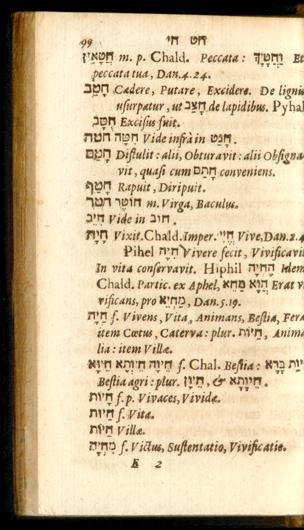 99 חט חי
חֲטָאִין m. p. Chald. Peccata: וַחֲטָיָךְ Et
peccata tua, Dan. 4. 24.
חָטַב Cædere, Putare, Excidere. De lignis
usurpatur, ut חָצַב de lapidibus. Pyhal
חֻטַּב Excisus fuit.
חטה חִטָּה Vide infrà in חָנַט.
חָטַם Distulit: alii, Obturavit: alii Obsigna-
vit, quasi cum חָתַם conveniens.
חָטַף Rapuit, Diripuit.
חטר חוֹטֶר m. Virga, Baculus.
חיב Vide in חוּב.
חָיָה Vixit. Chald. Imper. חֱיִי Vive, Dan. 2. 4
Pihel חִיָּה Vivere fecit, Vivificavit
In vita conservavit. Hiphil הֶחֱיָה Idem
Chald. Partic. ex Aphel, הֲוָא מַחֵא Erat v
rificans, pro מַחֲיֵא, Dan. 5. 19.
חַיָּה f. Vivens, Vita, Animans, Bestia, Fera
item Cœtus, Caterva: plur. חַיּוֹת, Anima
lia: item Villæ.
חֵיוָה חֵיוְתָא חֵיוָא f. Chal. Bestia: בָּרָא
Bestia agri: plur. חֵיוָן, & חֵיוָתָא.
חָיוֹת f. p. Vivaces, Vividæ.
חַיּוּת f. Vita.
חַוּוֹת Villæ.
מִחְיָה f. Victus, Sustentatio, Vivificatio.
E 2